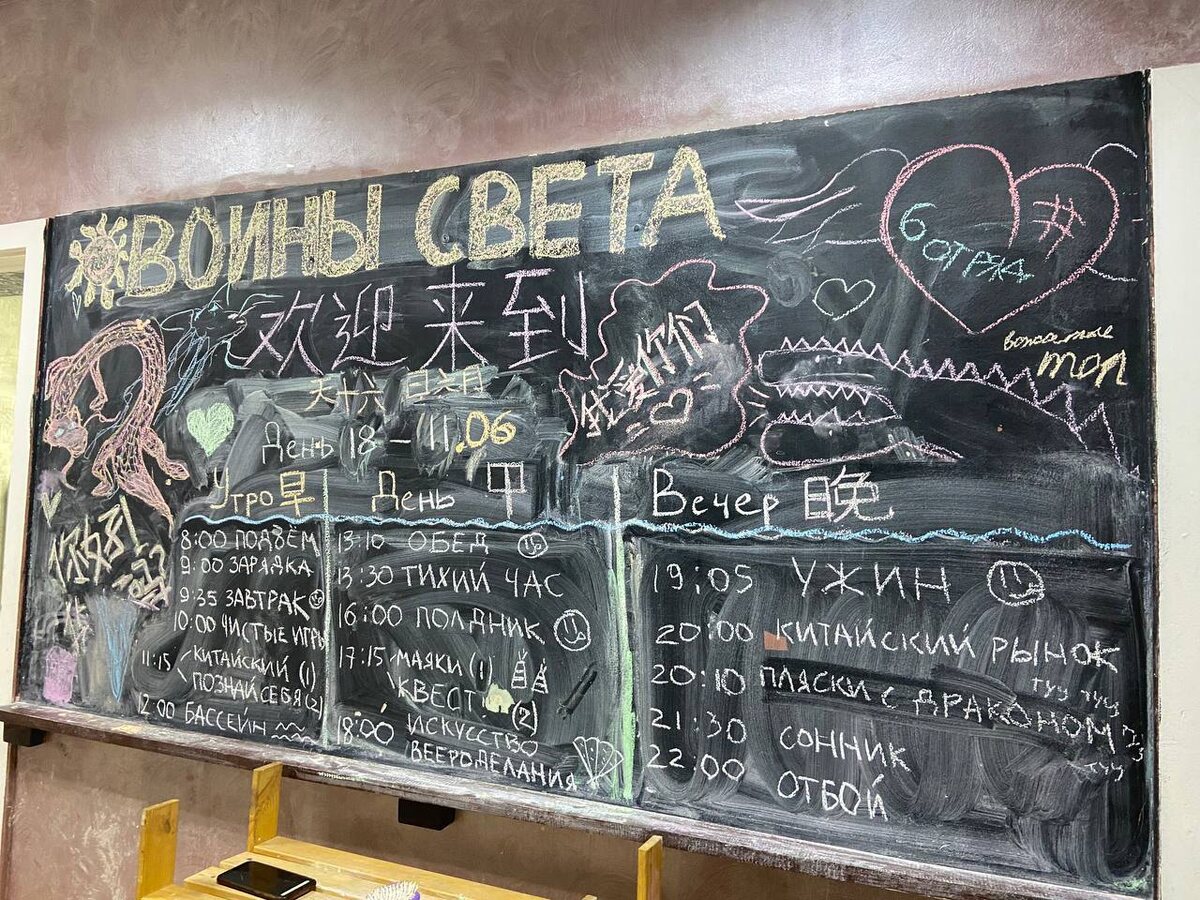 ВОИНЫ СВЕТА
6 ОТРЯД
#
欢迎来到
我爱你们
вожатые
топ
День 18 – 11.06
Утро 早
8:00 ПОДЪЕМ
9:00 ЗАРЯДКА
9:35 ЗАВТРАК
10:00 ЧИСТЫЕ ИГРЫ
11:15 КИТАЙСКИЙ (1)
ПОЗНАЙ СЕБЯ (2)
12:00 БАССЕЙН
День 甲
13:10 ОБЕД
13:30 ТИХИЙ ЧАС
16:00 ПОЛДНИК
17:15 МАЯКИ (1)
КВЕСТ (2)
18:00 ИСКУССТВО
ВЕЕРОДЕЛАНИЯ
Вечер 晚
19:05 УЖИН
20:00 КИТАЙСКИЙ РЫНОК
20:10 ПЛЯСКИ С ДРАКОНОМ
туу туу
туу
21:30 СОННИК
22:00 ОТБОЙ